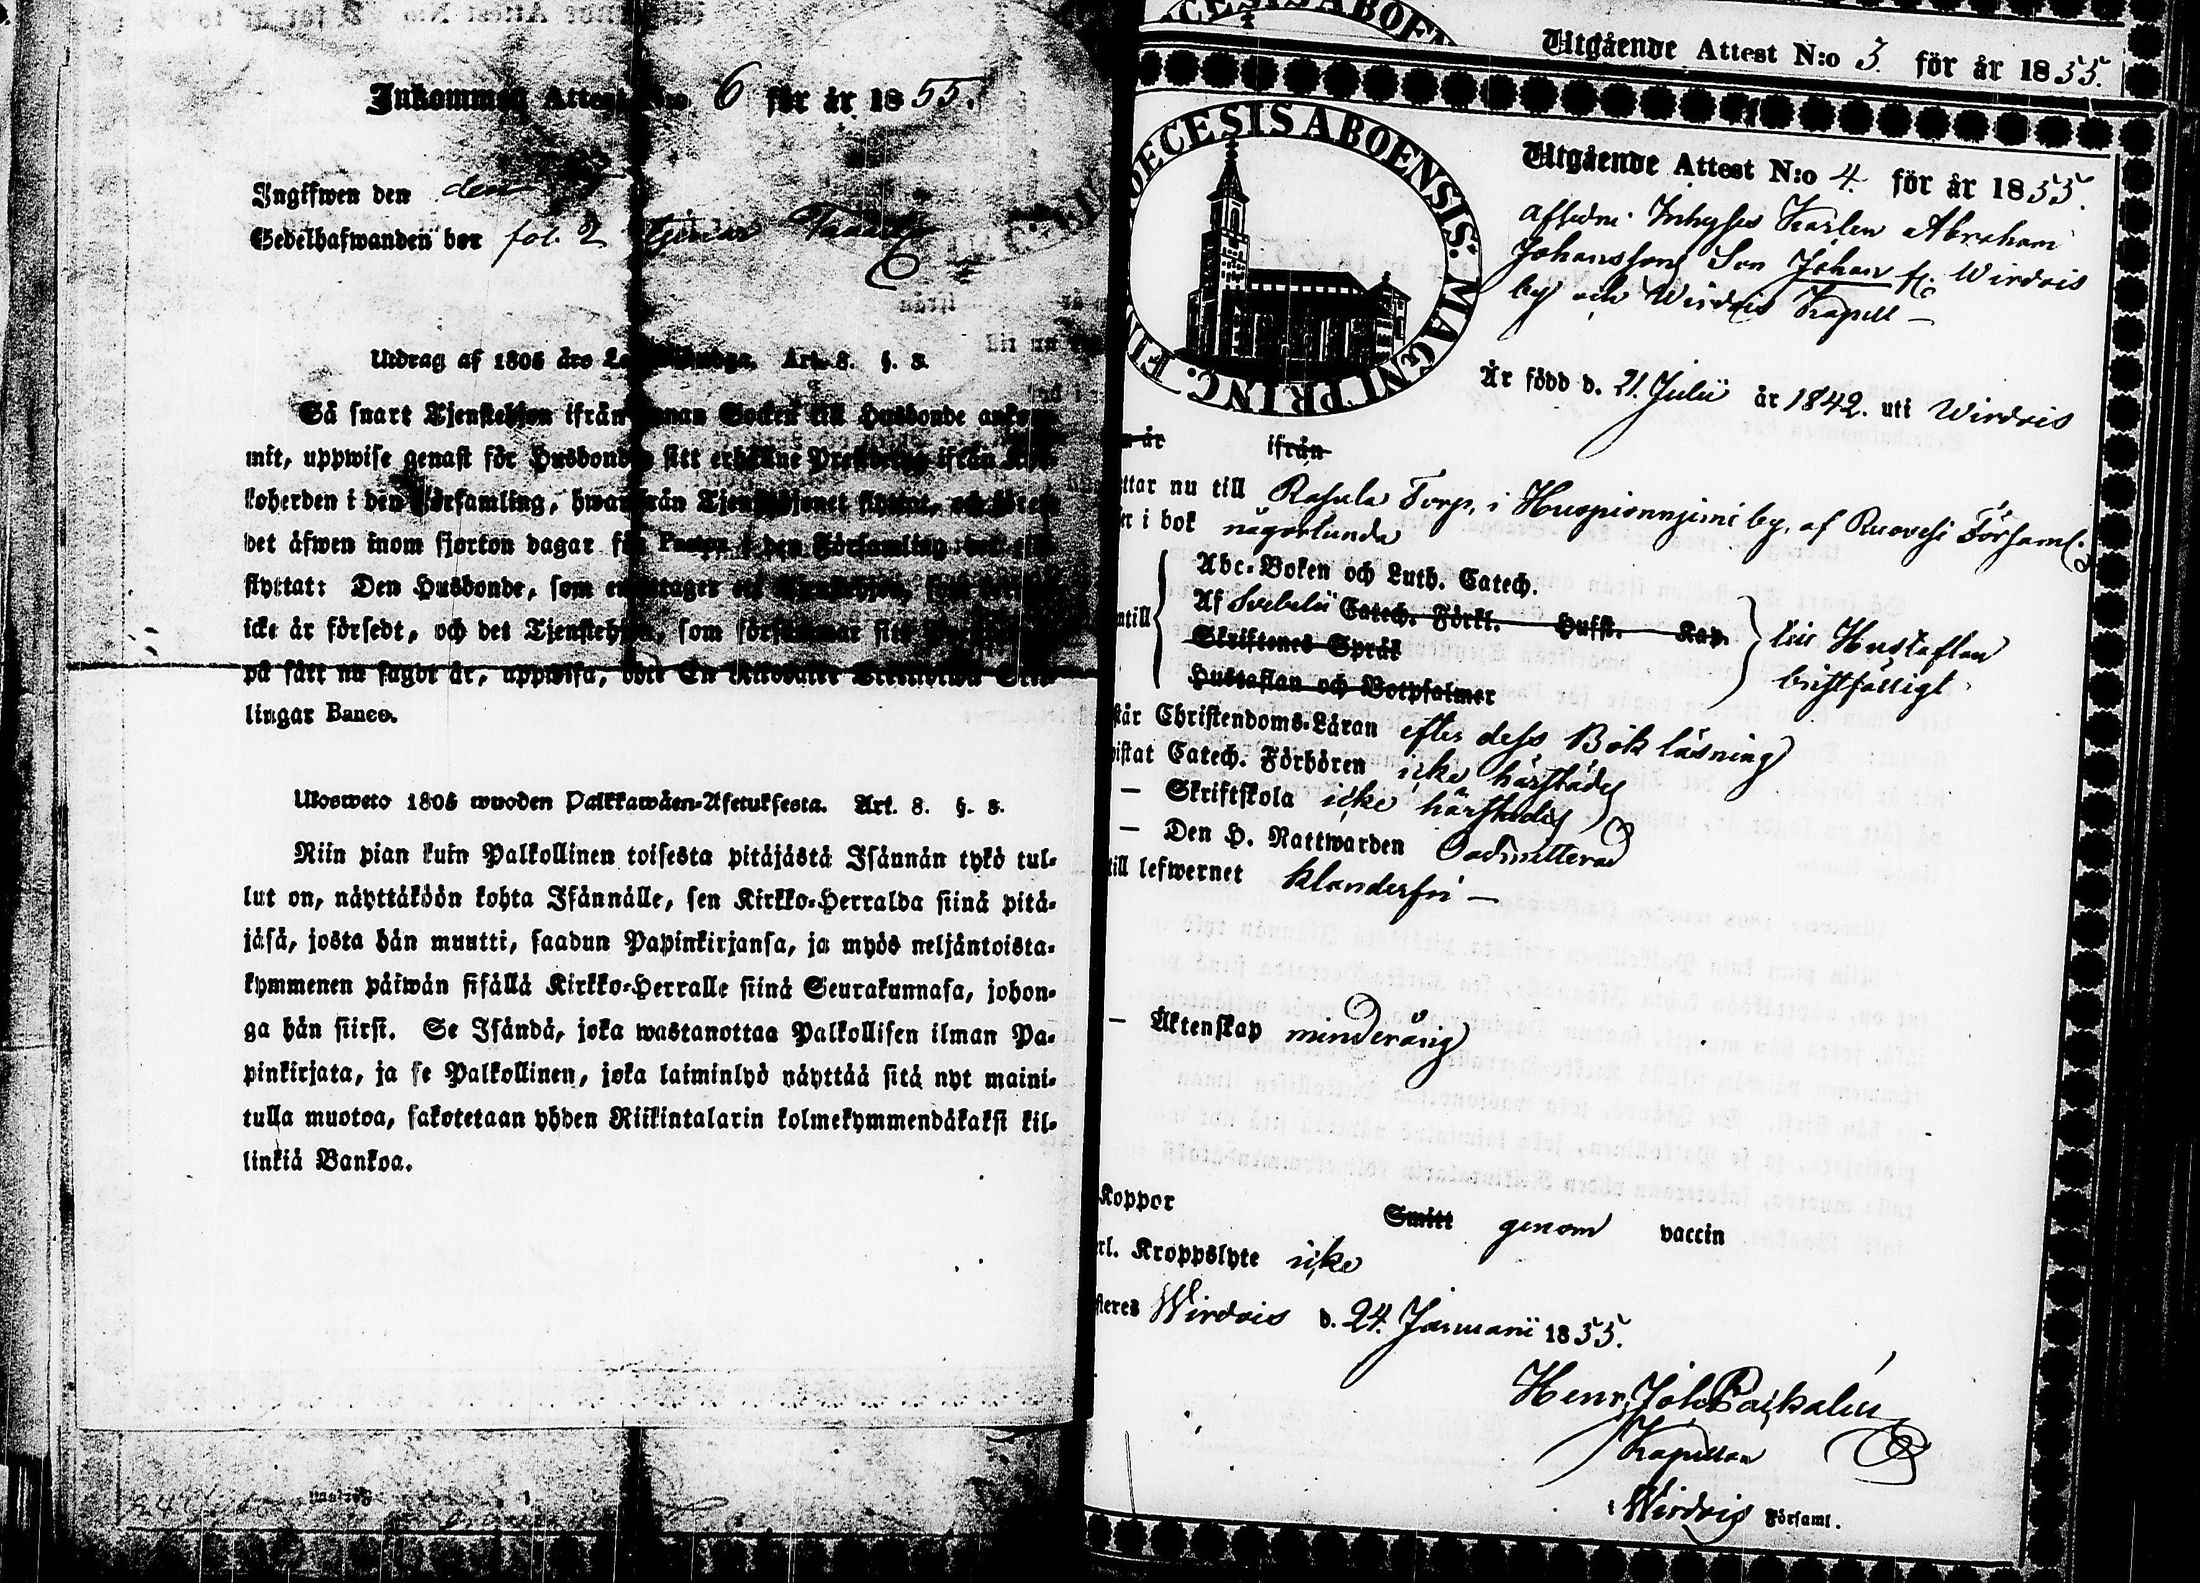 Inkommen Attest N:o 6 för år 1855.
Ingifwen den den
Sedelhafwanden bor fol. 2
Utdrag af 1805 års Lego-Stadga. Art. 8. §. 8.
Så snart Tjenstehjon ifrån annan Socken till Husbonde ankom-
mit, uppwise genast för Husbonden sitt erhållne Prestbetyg ifrån Kyr-
koherden i den Församling, hwarifrån Tjenstehjonet flyttat, och
det äfwen inom fjorton dagar för Pastor i den Församling
flyttat: Den Husbonde, som emottager ett Tjenstehjon, som
icke är försedt, och det Tjenstehjon, som försummar sitt
på sätt nu sagdt är, uppwisa, böte En Riksdaler Trettiotwå Skil-
lingar Banco.
Ulosweto 1805 wuoden Palkkawäen-Asetuksesta. Art. 8. §. 8.
Niin pian kuin Palkollinen toisesta pitäjästä Isännän tykö tul-
lut on, näyttäköön kohta Isännälle, sen Kirkko-Herralda siinä pitä-
jäsä, josta hän muutti, saadun Papinkirjansa, ja myös neljäntoista-
kymmenen päiwän sisällä Kirkko-Herralle siinä Seurakunnasa, johon-
ga hän siirsi. Se Isändä, joka wastanottaa Palkollisen ilman Pa-
pinkirjata, ja se Palkollinen, joka laiminlyö näyttää sitä nyt maini-
tulla muotoa, sakotetaan yhden Riikintalarin kolmekymmendäkaksi kil-
linkiä Bankoa.
DIOECESIS ABOENSIS
Utgående Attest N:o 3. för år 1855.
DIOECESIS ABOENSIS. MAGNI PRINC. FIN
Utgående Attest N:o 4. för år 1855.
afledne Inhyses Karlen Abraham
Johanssons Son Johan fr. Wirdois
by och Wirdois Kapell –
Är född d. 21. Julii år 1842. uti Wirdois
n år ifrån
ttar nu till Rajala Torp, i Huopionnjemi by, af Ruovesi Församl.
er i bok någorlunda
Abc-Boken och Luth. Catech.
ntill Af Svebelii Catech. Förkl. Hufst. Kap. lär Hustaflan
Skriftenes Språk
Hustaflan och Botpsalmer bristfälligt
står Christendoms-Läran efter dess Bok läsning
istat Catech. Förhören icke härstädes
– Skriftskola icke härstädes
– Den H. Nattwarden Oadmitterad
till lefwernet klanderfri –
– Äktenskap minderårig
Koppor Smitt genom vaccin
rl. Kroppslyte icke
steres Wirdois d. 24. Januarii 1855.
Henr. Joh. Paikalén
Kapellan
i Wirdois Församl.